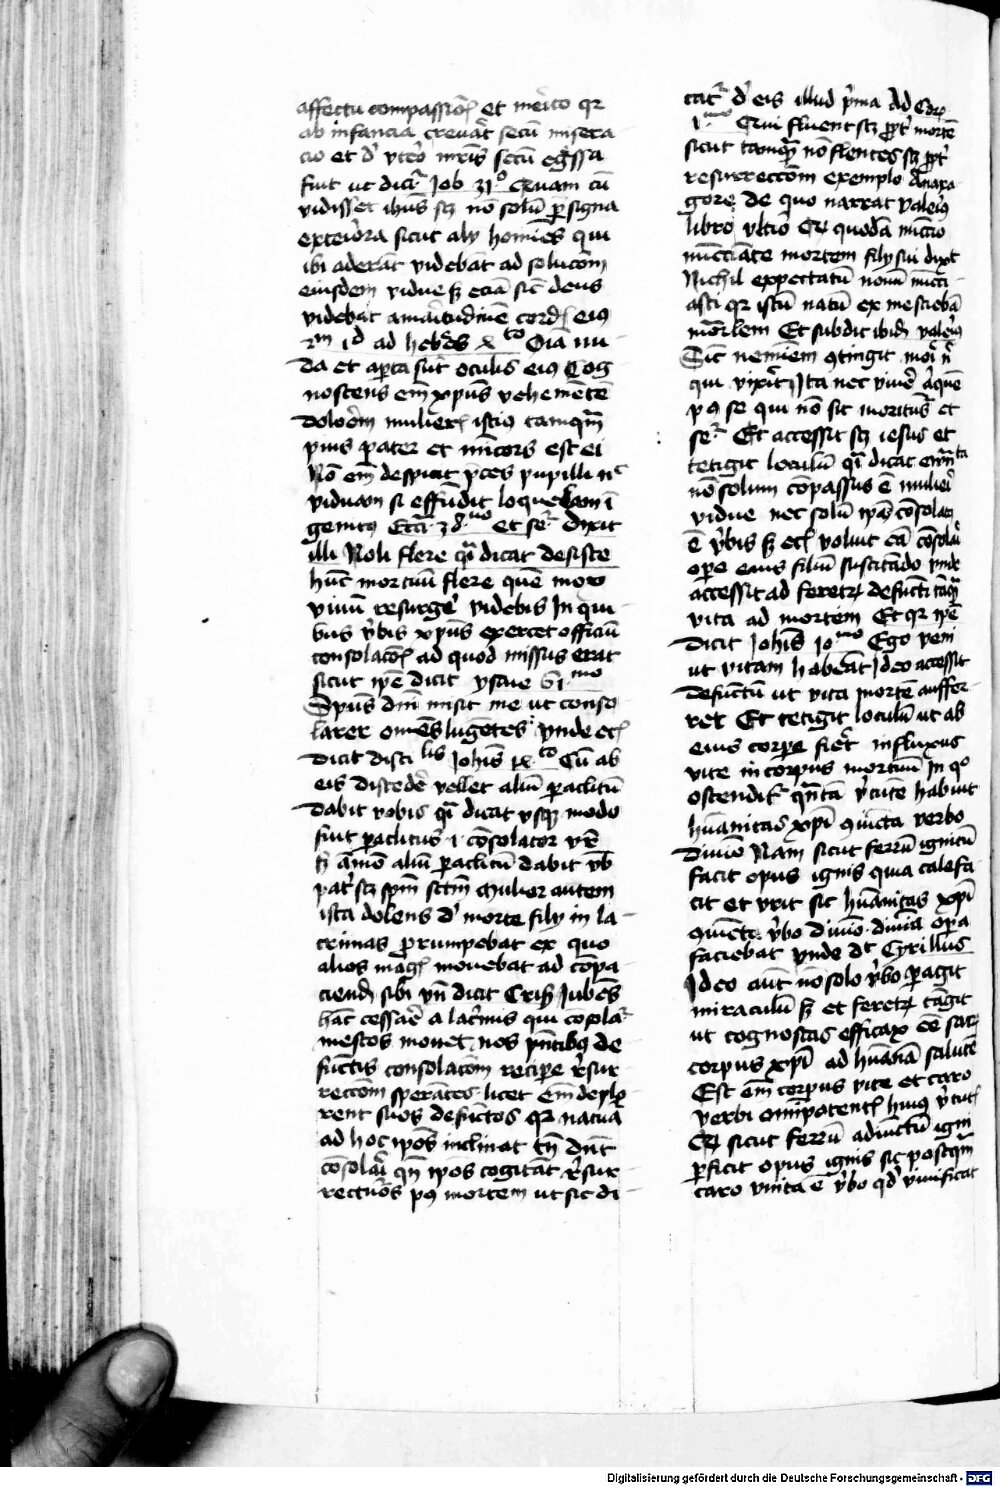 affectu compassiōis et mērito qr
ab infancia crevāt secū misera
cio et d' vtero mr̄is secū egssa
fuit ut dicit Job 31o Quam cū
vidisset ihūs sz nō solū p signa
exteriora sicut alij homīes qui
ibi aderāt videbāt ad solucōm
eiusdem vidue sz eciā sic deus
videbat amaritudinē cordis eius
ad hebreos 4to Oīa nu-
da et aperta sūt oculis eius Cog
noscens em̄ xpūs vehementē
dolorem mulieris istius tamqm̄
pius pater et mīcors est ei
Nō em̄ despiciet pces pupilli n
viduam si effūdit loquelam
gemitus Ecci 38uo et sequitur dixit
illi Noli flere q dicat desiste
hūc mortuū flere quē mox
vivū resurge videbis In qui
bus vbis xpūs exercet officiū
consolacōis ad quod missus erat
sicut ipē dicit ysaie 61mo
Spūs dn̄i misit me ut conso
larer omēs lugētes vnde
dicit discilis Johīs Cū ab
eis discedē vellet aliū paclitū
dabit vobis q dicat vsq modo
fuit paclitus i cōsolator vr̄
aliū paclitū dabit vob
patr sz spm̄ sctm̄ Mulier autem
ista dolens d' morte filij in la-
crimas prumpebat ex quo
alios magis movebat ad cōpa
ciend sibi vn̄ dicit Cris Jubēs
hāc cessaē a lacrimis qui copla
mestos monet nos pn̄tibus de
fūctis consolacōm recipe rsur
reccōm sperātes licet em̄ deplo
rent suos defūctos qr natura
ad hoc ipōs inclinat tn̄ dn̄t
cōsolari qn̄ ipos cogitāt rsur
recturos p9 mortem ut sic di-
catr d' eis illud prima Ad Cor
7mo Qui fluent sz ppt mortē
sicut tamqm̄ nō flentes sz ppt
resurreccōm exemplo Anaxa
gore de quo narrat valerius
libro vltīo quodā nūccio
nūcciāte mortem filij sui dixit
Nichil expectatū novū nūcci
asti qr istū natū ex me sciebā
mortlem Et subdit ibid valerius
Sic neminem 9tingit mori n
qui vixit Ita nec viver
p9 se qui nō sit moriturus et
se Et accessit sz iesus et
tetigit loculū q dicat
nō solum cōpassus ē mulieri
vidue nec solū ipā cōsolat
ē vbis sz eciā voluit eā cōsolari
ope eius filiū suscitādo vnde
accessit ad feretrū defūcti
vita ad mortem Et qr ipē
dicit Johīs 10mo Ego veni
ut vitam habeāt Ideo accessit
defūctū ut vita mortē auffer-
ret Et tetigit loculū ut ab
eius corpe fiet influxus
vite in corpus mortuū In qo
ostendit qn̄tā vtutē habuit
hūanitas xpī 9iūcta verbo
divino Nam sicut ferrū ignitū
facit opus ignis quia calefa
cit et vrit sic hūanitas xpī
9iūcta vbo divino divīa opa
faciebat vnde dt Cyrillus
Ideo aut nō solo vbo pagit
miraculū sz et feretrū tāgit
ut cognoscas efficax eē sacr
corpus xpī ad hūanā salutē
Est em̄ corpus vite et caro
verbi omīpotentis huius vtutis
sicut ferrū adiūctū igni
pficit opus ignis sic postqm̄
caro vnita ē vbo qd vivificat